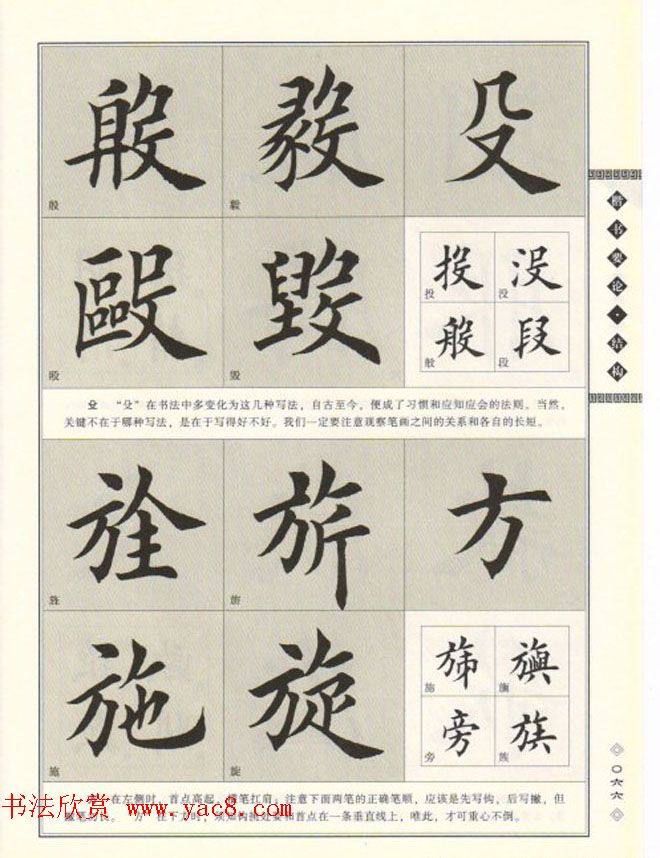 殷 毅 殳
殴 毁
投 没
般 段
殳 “殳”在书法中多变化为这几种写法，自古至今，便成了习惯和应知应会的法则。当然，
关键不在于哪种写法，是在于写得好不好。我们一定要注意观察笔画之间的关系和各自的长短。
旌 旂 方
施 旋
旁 族
在左侧时，首点高起，横笔扛肩；注意下面两笔的正确笔顺，应该是先写钩，后写撇，但
要和首点在一条垂直线上，唯此，才可重心不倒。
楷书要论·结构
〇六六
书法欣赏 www.yac8.com